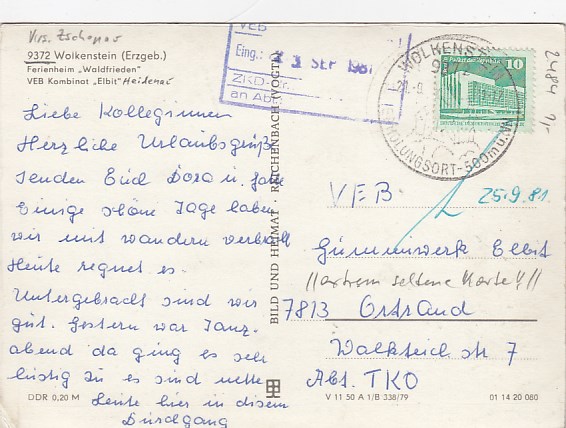 Krs. Zschopau
9372 Wolkenstein (Erzgeb.)
Ferienheim „Waldfrieden"
VEB Kombinat „Elbit" Heidenau
Liebe Kolleginnen
Herzliche Urlaubsgrüße
senden Euch Dora u.
Einige schöne Tage haben
wir mit wandern verbracht
Heute regnet es.
Untergebracht sind wir
gut. Gestern war Tanz-
abend da ging es sehr
lustig zu es sind nette
Leute hier in diesem
Durchgang
DDR 0,20 M
BILD UND HEIMAT · REICHENBACH (VOGTL)
VEB
Eing.: 23 SEP 1981
ZKD-
an Abt.
WOLKENSTEIN
9372
ERHOLUNGSORT-500m ü. NN
10
2484
VEB
25.9.81.
Gummiwerk Elbit
//extrem seltene Karte!!//
7813 Ortrand
Walkteich str 7
Abt. TKO
V 11 50 A 1/B 338/79
01 14 20 080